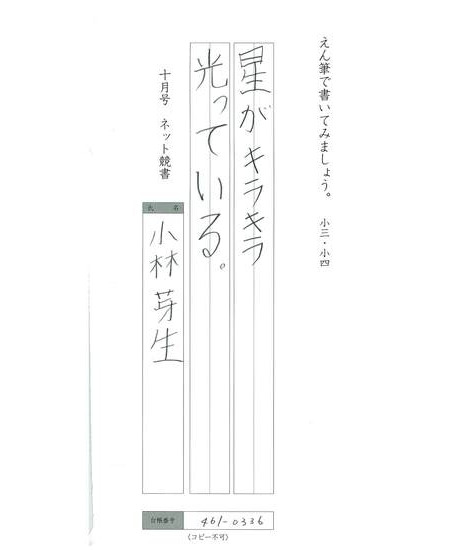 えん筆で書いてみましょう。 小三・小四
星がキラキラ
光っている。
十月号 ネット競書
氏 名
小林芽生
台帳番号 461-0336
〈コピー不可〉